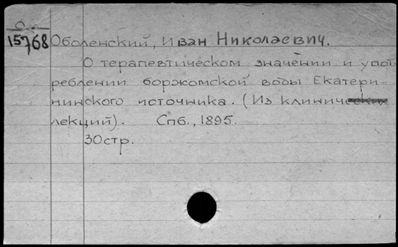 О
15768 Оболенский, Иван Николаевич.
О терапевтическом значении и упот
реблении боржомской воды Екатери-
нинского источника. (Из клинических
лекций). Спб., 1895.
30стр.